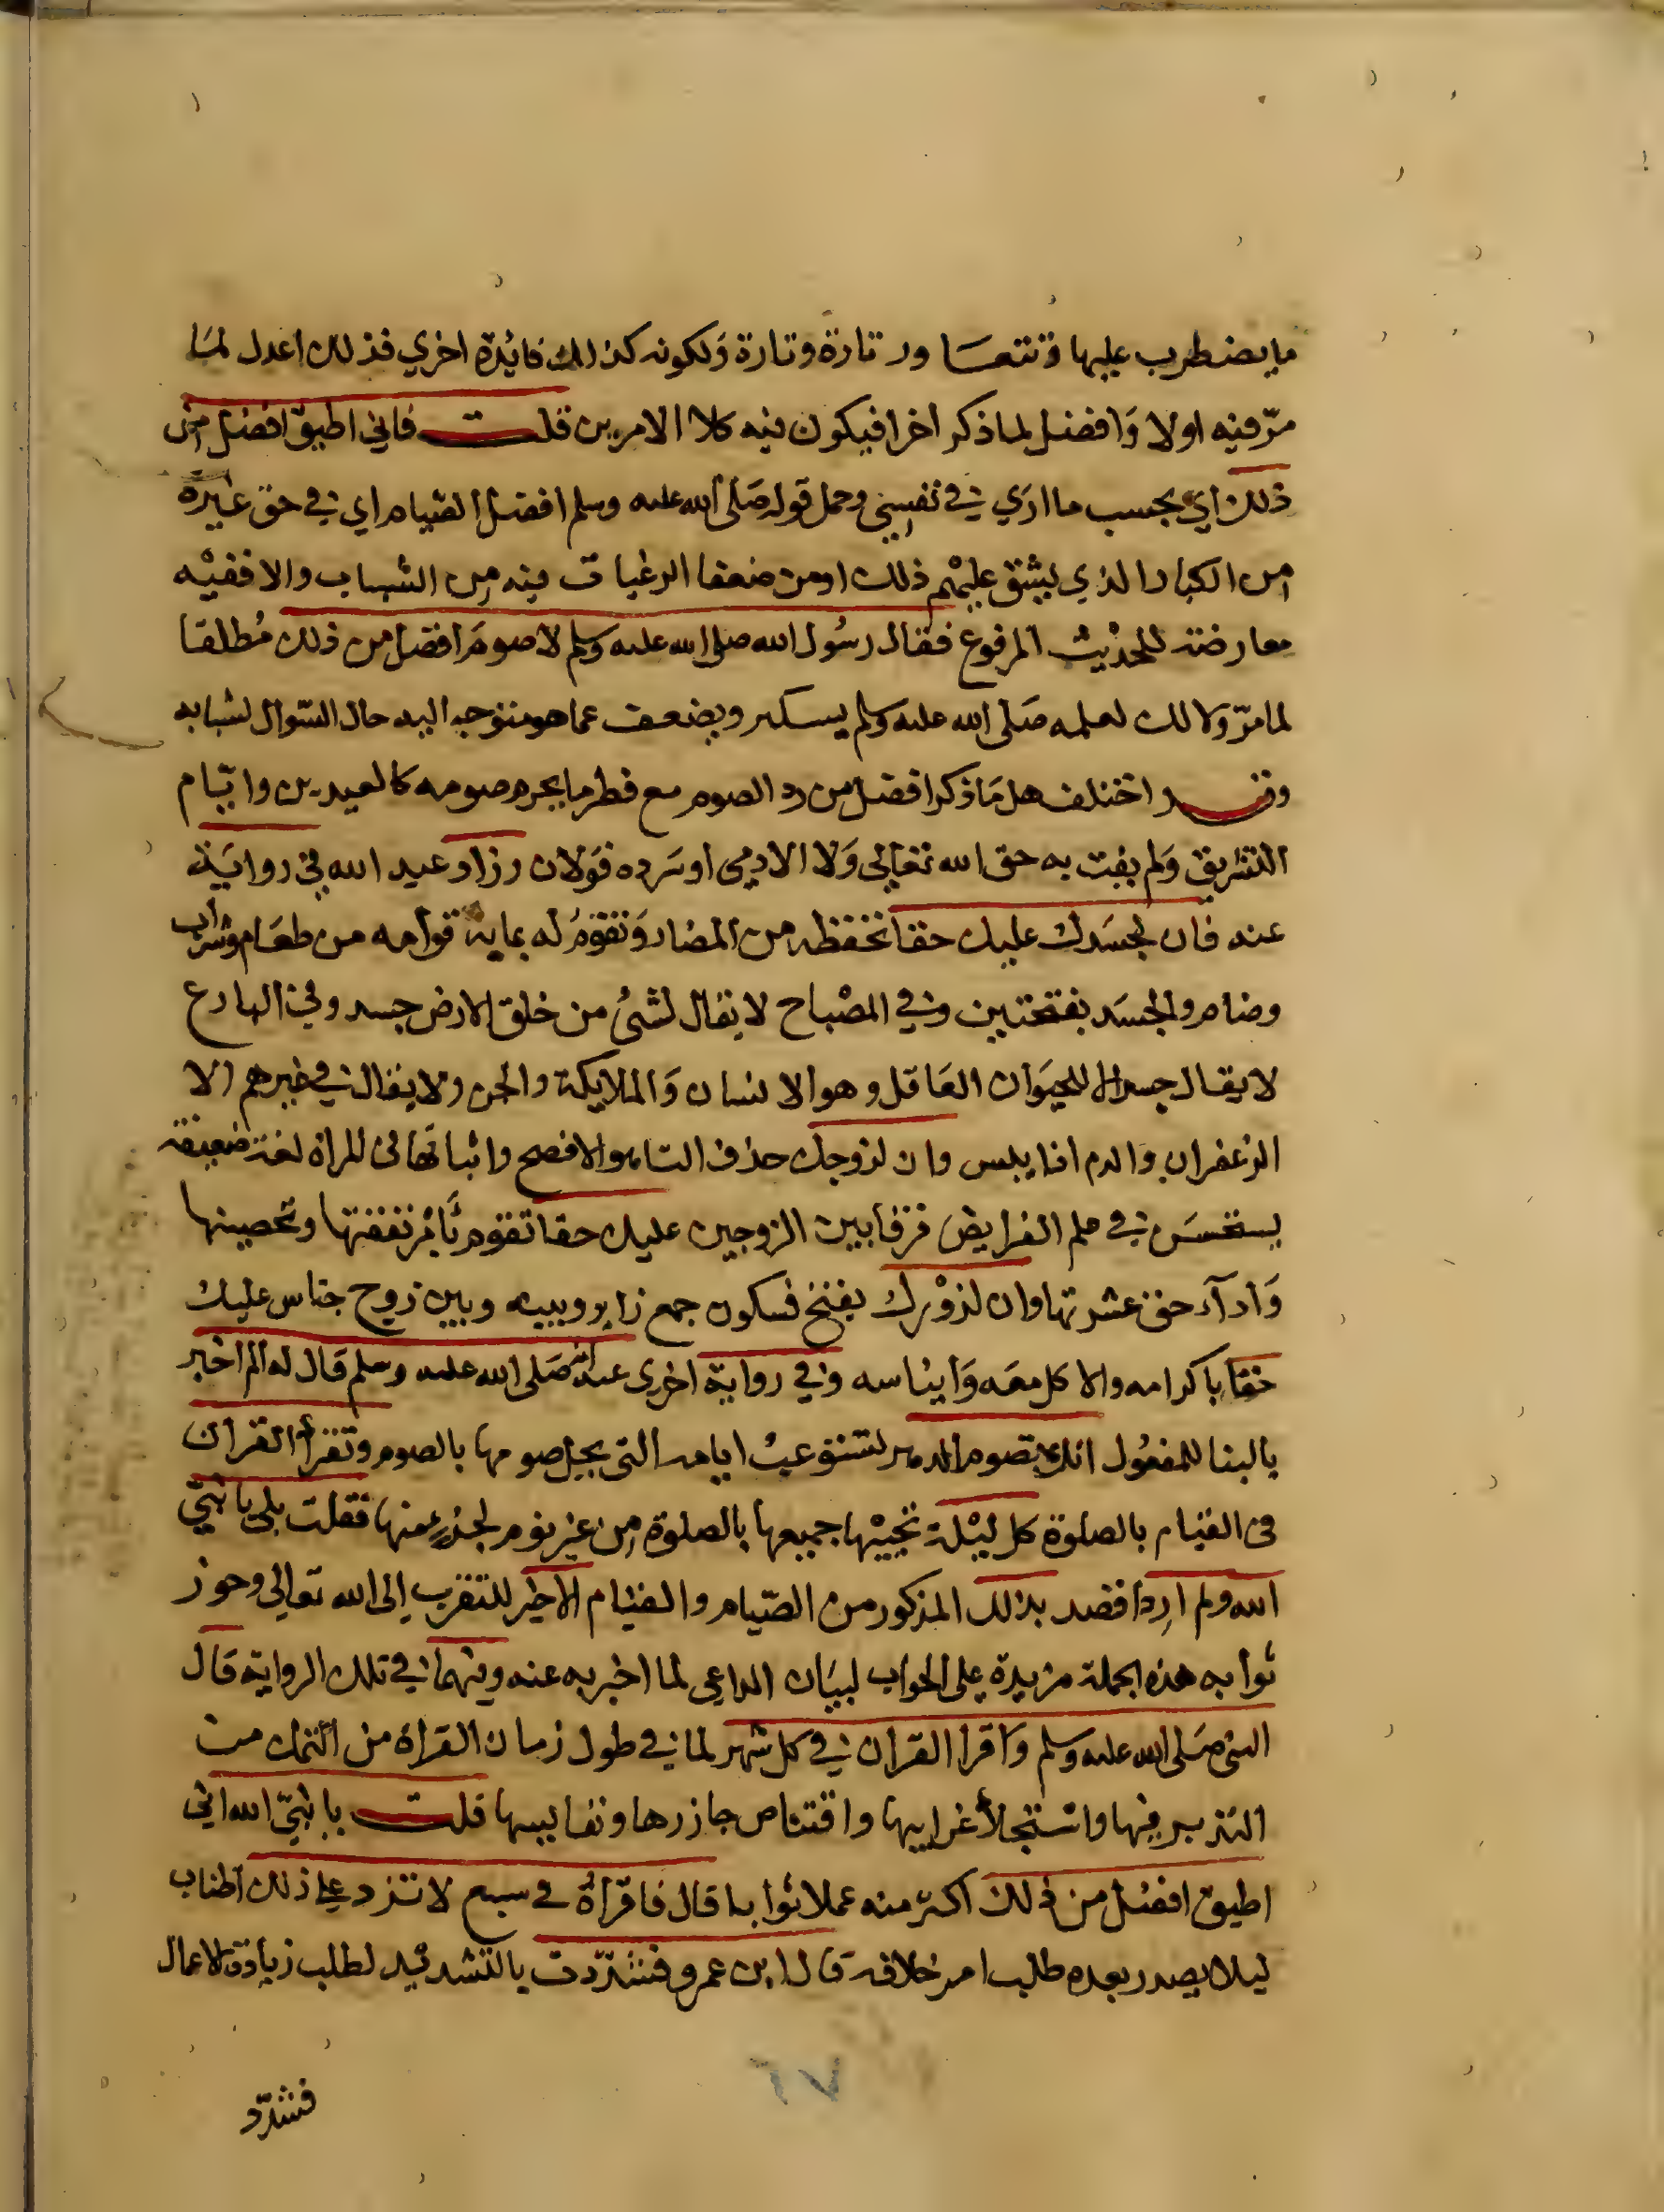 ما يضطرب عليها فتتعسا ور تارة وتارة ولكونه كذلك فائدة اخري فذلك اعدل لما
مرّ فيه اولا وَافضل لما ذكر اخرا فيكون فيه كلا الامرين قلت فاني اطيق افضل من
ذلك اي بحسب ما اري في نفسي وحمل قوله صَلى الله عليه وسلم افضل الصيام اي في حق غيره
من الكبار الذي يشق عليهم ذلك او من ضعفا الرغبات فيه من الشباب والا ففيْه
معارضة للحديث المرفوع فقال رسُول الله صلى الله عليه وسلم لا صومَ افضل من ذلك مُطلقا
لما مرّ ولا لك لعلمه صَلى الله عليه وسلم يسكر ويضعف عما هو متوجه اليه حال السّوال لشبابه
وقد اختلف هل مَا ذكر افضل من رد الصوم مع فطر ما يحرم صومه كالعيدين وايّام
التشريق وَلم يفت به حق الله تعَالي وَلا الادمي او سَرده قوَلان وزاد عبد الله في روايَة
عنه فان لجسَدك عليك حقا تحفظه من المضار وَتقومُ له بما به قوامه من طعَام وشراب
ومنام والجسَد بفتحتين وفي المصْباح لا يقال لشئ من خلق الارض جسد وفي البارع
لا يقال جسد الا للحيَوان العَاقل وهو الانسان وَالملايكة والجن ولا يقال في غيرهم الا
الزعفران والدم اذا يبس وان لزوجك حذف التا هو الافصح واثباتها في المراة لغة ضعيفة
يستحسَن في علم الفرايض فرقا بين الزوجين عليك حقا تقوم بأمر نفقتها وتحصينها
وَادآء حق عشرتها وان لزوْرك بفتح فسكون جمع زاير وبينه وبين زوج جناس عليك
حقا باكرامه والاكل معَه وَايناسه وفي رواية اخرى عنه انه صَلى الله عليه وسلم قال له الم اخبر
بالبنا للمفعُول انك تصوم الدهر لتستوعبُ ايامه التي يحل صومها بالصوم وتقرأ القران
في القيام بالصلوة كل ليْلة تحييْها جميعها بالصلوة من غير نوم لجزء منها فقلت بلى يا نبيّ
الله ولم ارد اقصد بذلك المذكور من الصّيام والقيام الا خير للتقرب إلى الله تعالى وحوز
ثوابه هذه الجملة مزيدة على الجواب لبيَان الداعي لما اخبر به عنه وفيها في تلك الرواية قال
النبي صَلى الله عليه وسلم وَاقرا القران في كل شهر لما في طول زمان القراة من التمكن من
التدبر فيها واستجلأ غرايبها واقتناص جاذرها ونفايسها قلت يا نبيّ الله اني
اطيق افضل من ذلك اكثر منه عملا ثوابا قال فاقرأهُ في سبع لا تزد على ذلك اطناب
ليلا يصدر بعده طلب امر خلافه قال ابن عمرو فشدّدت بالتشديد لطلب زيادة الاعمال
فشدّد
٦٧